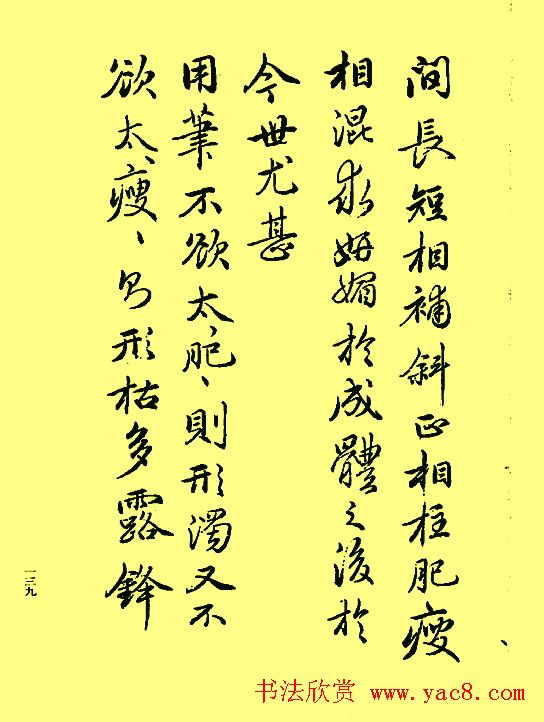 間長短相補斜正相柱肥瘦
相混求妍媚於成體之後於
今世尤甚
用筆不欲太肥、則形濁又不
欲太瘦、、則形枯多露鋒
一三九
书法欣赏 www.yac8.com